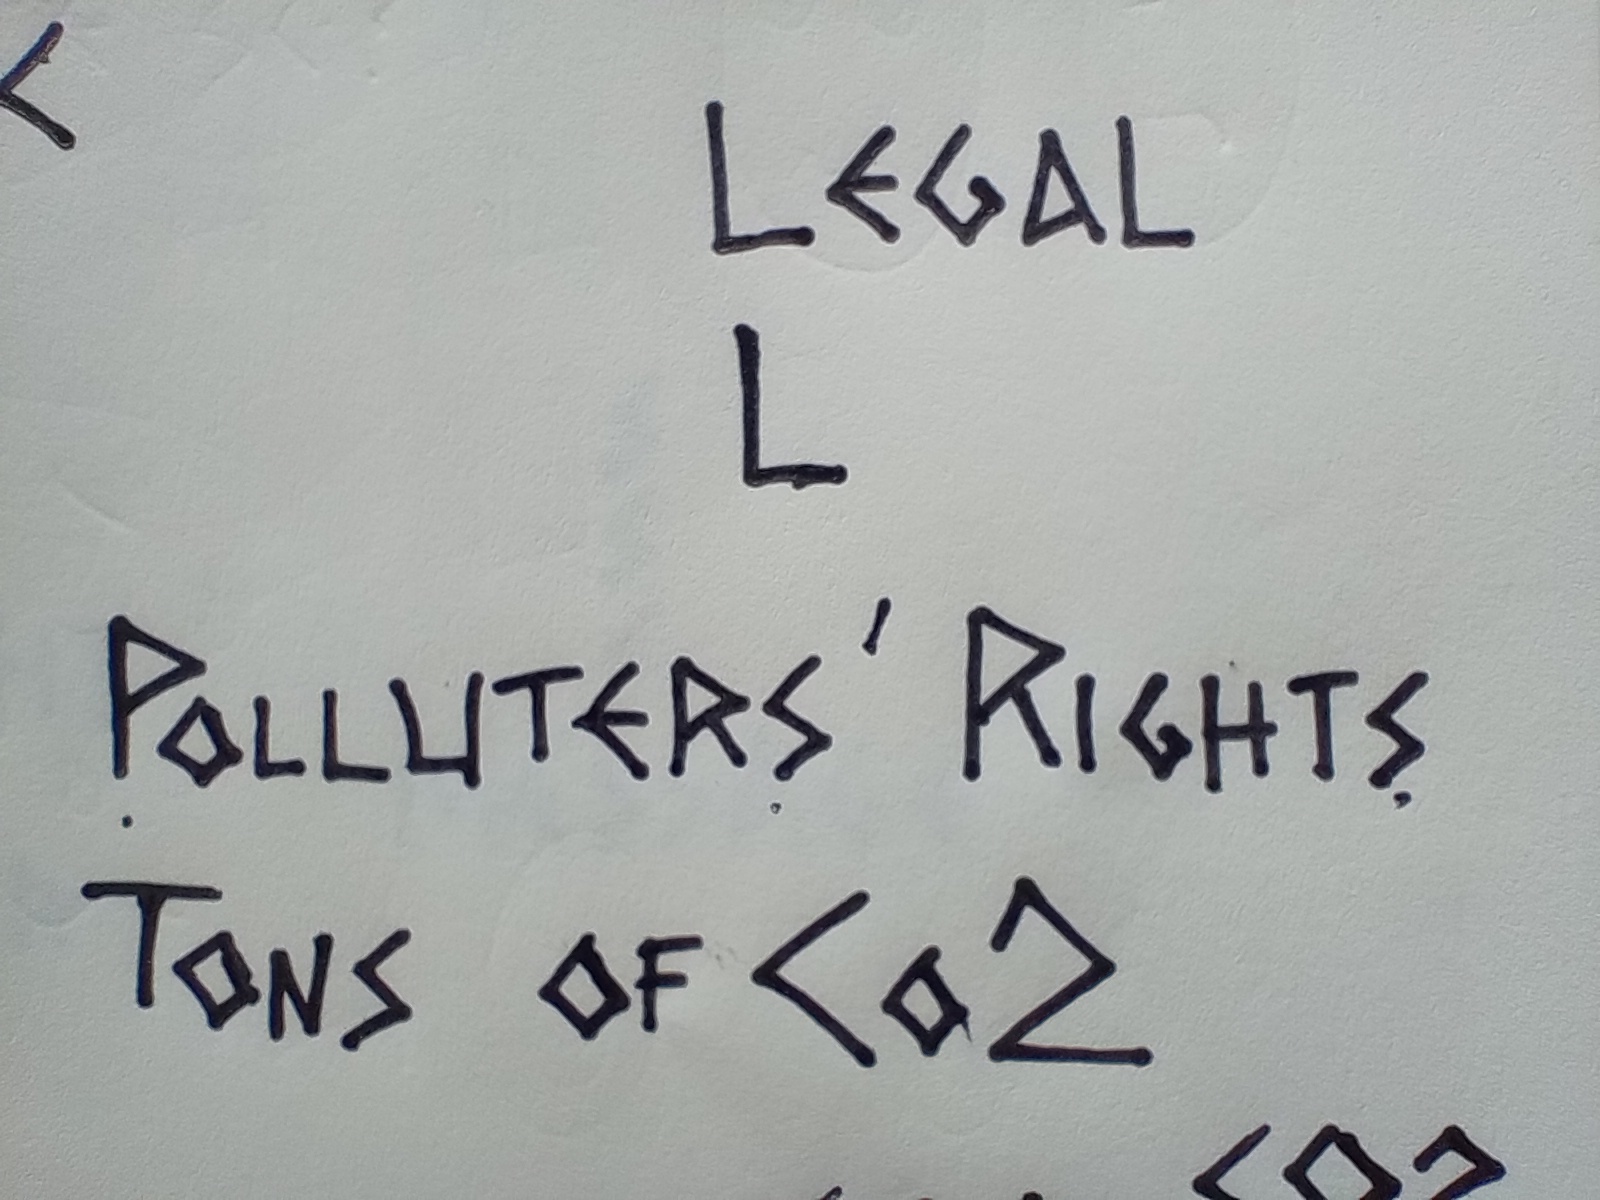 LEGAL
L
POLLUTERS' RIGHTS
TONS OF CO2
CO2